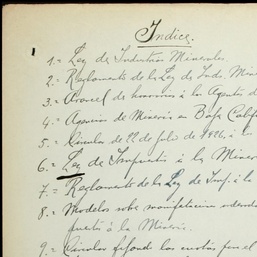 Indice.
1.= Ley de Industrias Minerales.
2.= Reglamento de la Ley de Inds. Mine
3.= Arancel de honorarios á los Agentes d
4.= Agencias de Minería en Baja Calif
5.= Circular de 22 de julio de 1886, á la
6.= Ley de Impuesto á la Miner
7.= Reglamento de la Ley de Imp. á la
8.= Modelos sobre manifestacion
puesto á la Minería.
9.= Circular fijando las cuotas